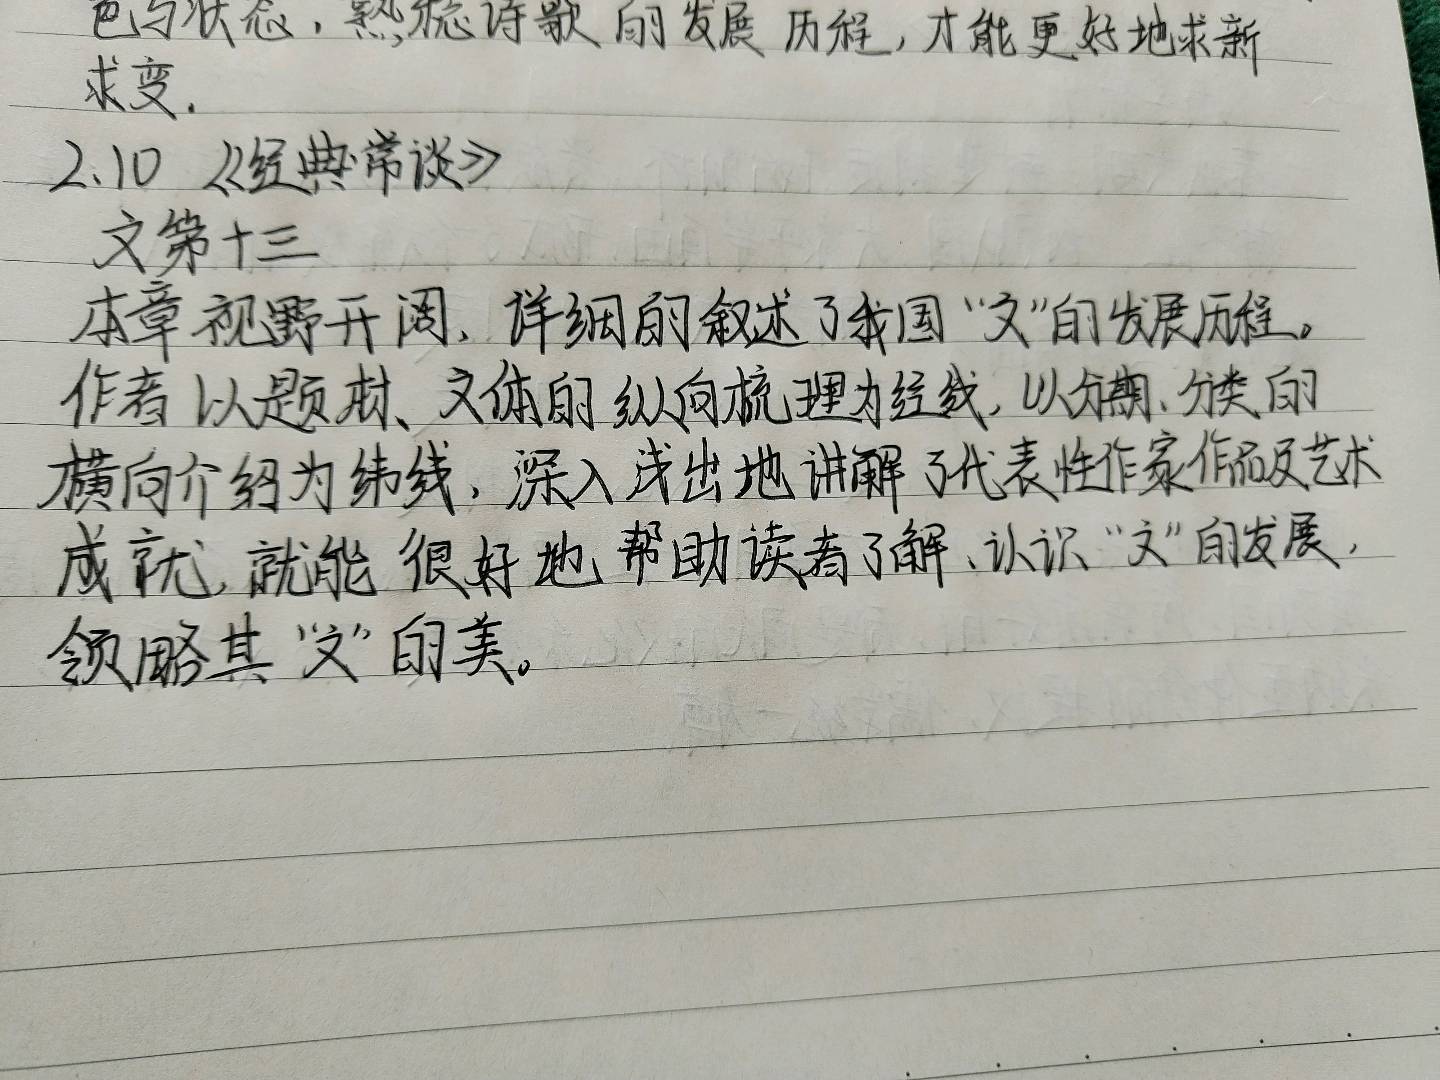 色与状态，熟稔诗歌的发展历程，才能更好地求新
求变．
2.10 《经典常谈》
文第十三
本章视野开阔，详细的叙述了我国“文”的发展历程。
作者以题材、文体的纵向梳理为经线，以分期、分类的
横向介绍为纬线，深入浅出地讲解了代表性作家作品及艺术
成就，就能很好地帮助读者了解、认识“文”的发展，
领略其“文”的美。